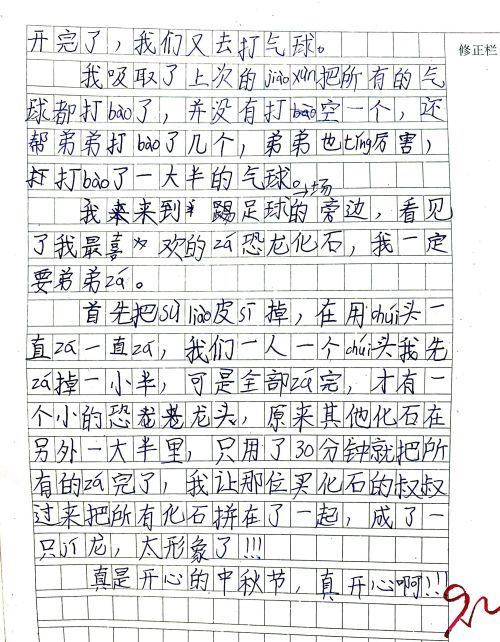 开完了，我们又去打气球。
修正栏
我吸取了上次的jiào xùn把所有的气
球都打bào了，并没有打空一个，还
帮弟弟打bào了几个，弟弟也tǐng厉害，
打bào了一大半的气球。
我来到踢足球场的旁边，看见
了我最喜欢的zá恐龙化石，我一定
要弟弟zá。
首先把sù liào皮sī掉，在用chuí头一
直zá一直zá，我们一人一个chuí头我先
zá掉一小半，可是全部zá完，才有一
个小的恐龙头，原来其他化石在
另外一大半里，只用了30分钟就把所
有的zá完了，我让那位买化石的叔叔
过来把所有化石拼在了一起，成了一
只龙，太形象了!!!
真是开心的中秋节，真开心啊!!!